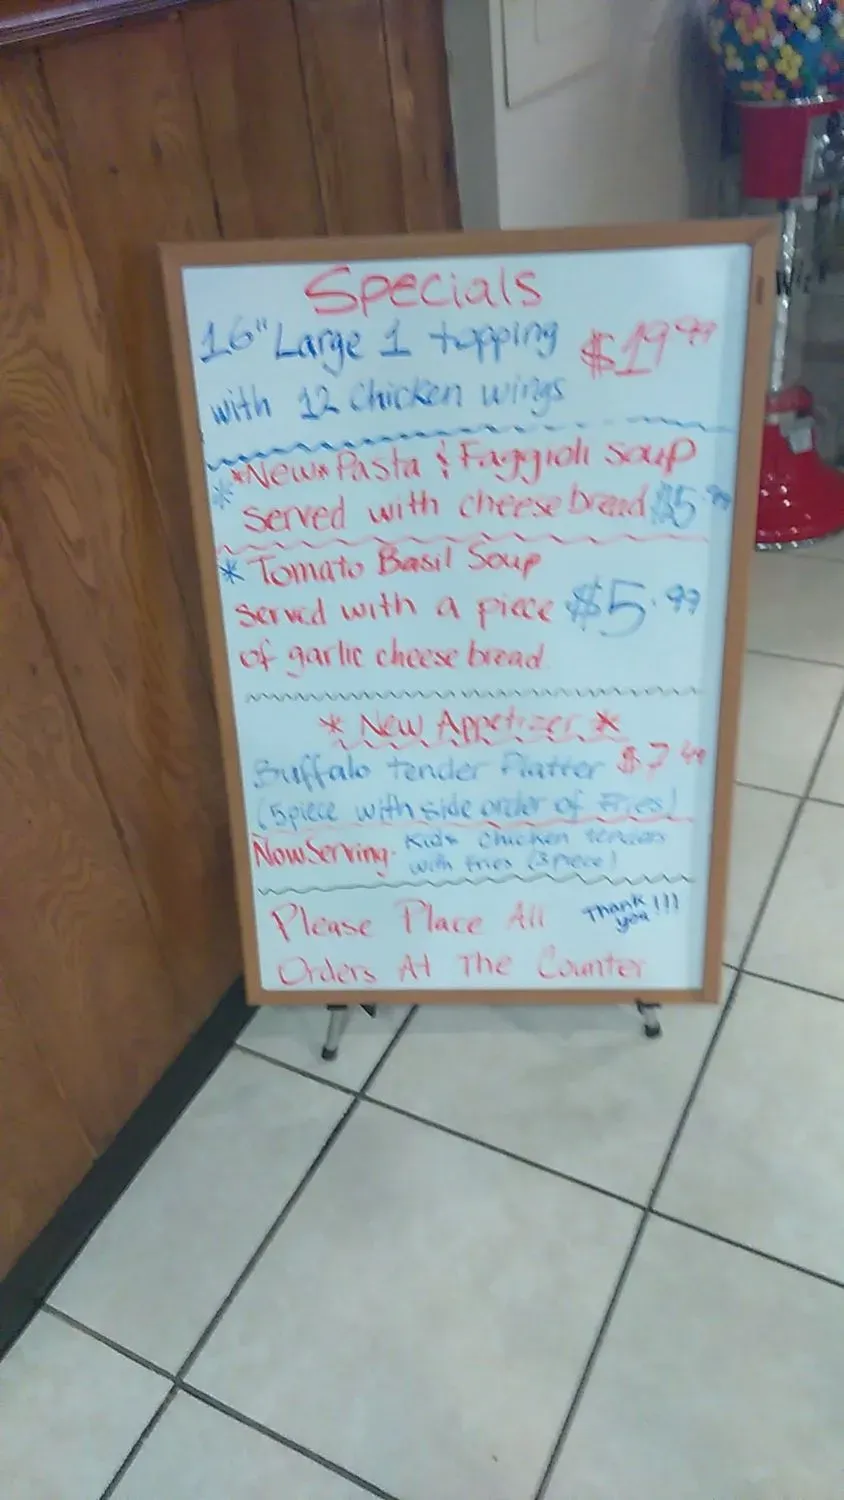 Specials
16" Large 1 topping $19.99
with 12 Chicken wings
*New* Pasta & Faggioli soup
* served with cheese bread $5.99
* Tomato Basil Soup
served with a piece $5.99
of garlic cheese bread.
* New Appetizer *
Buffalo tender Platter $7.49
(5 piece with side order of Fries)
Now Serving. Kids Chicken tenders
with Fries (3 piece)
Please Place All Thank you!!!
Orders At The Counter